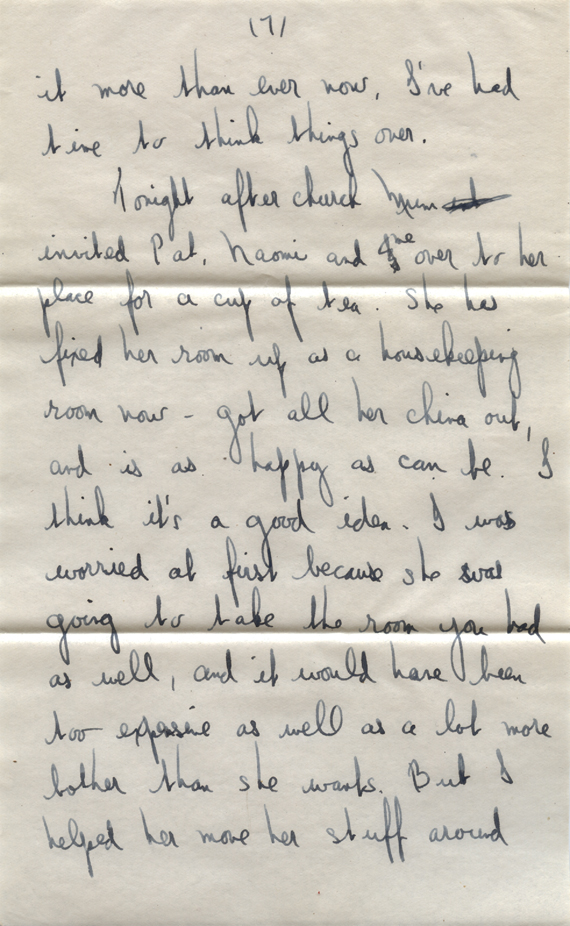 (7)
it more than ever now, I've had
time to think things over.
Tonight after church Mum
invited Pat, Naomi and me over to her
place for a cup of tea. She has
fixed her room up as a housekeeping
room now - got all her china out,
and is as happy as can be. I
think it's a good idea. I was
worried at first because she was
going to take the room you had
as well, and it would have been
too expensive as well as a lot more
bother than she wants. But I
helped her move her stuff around